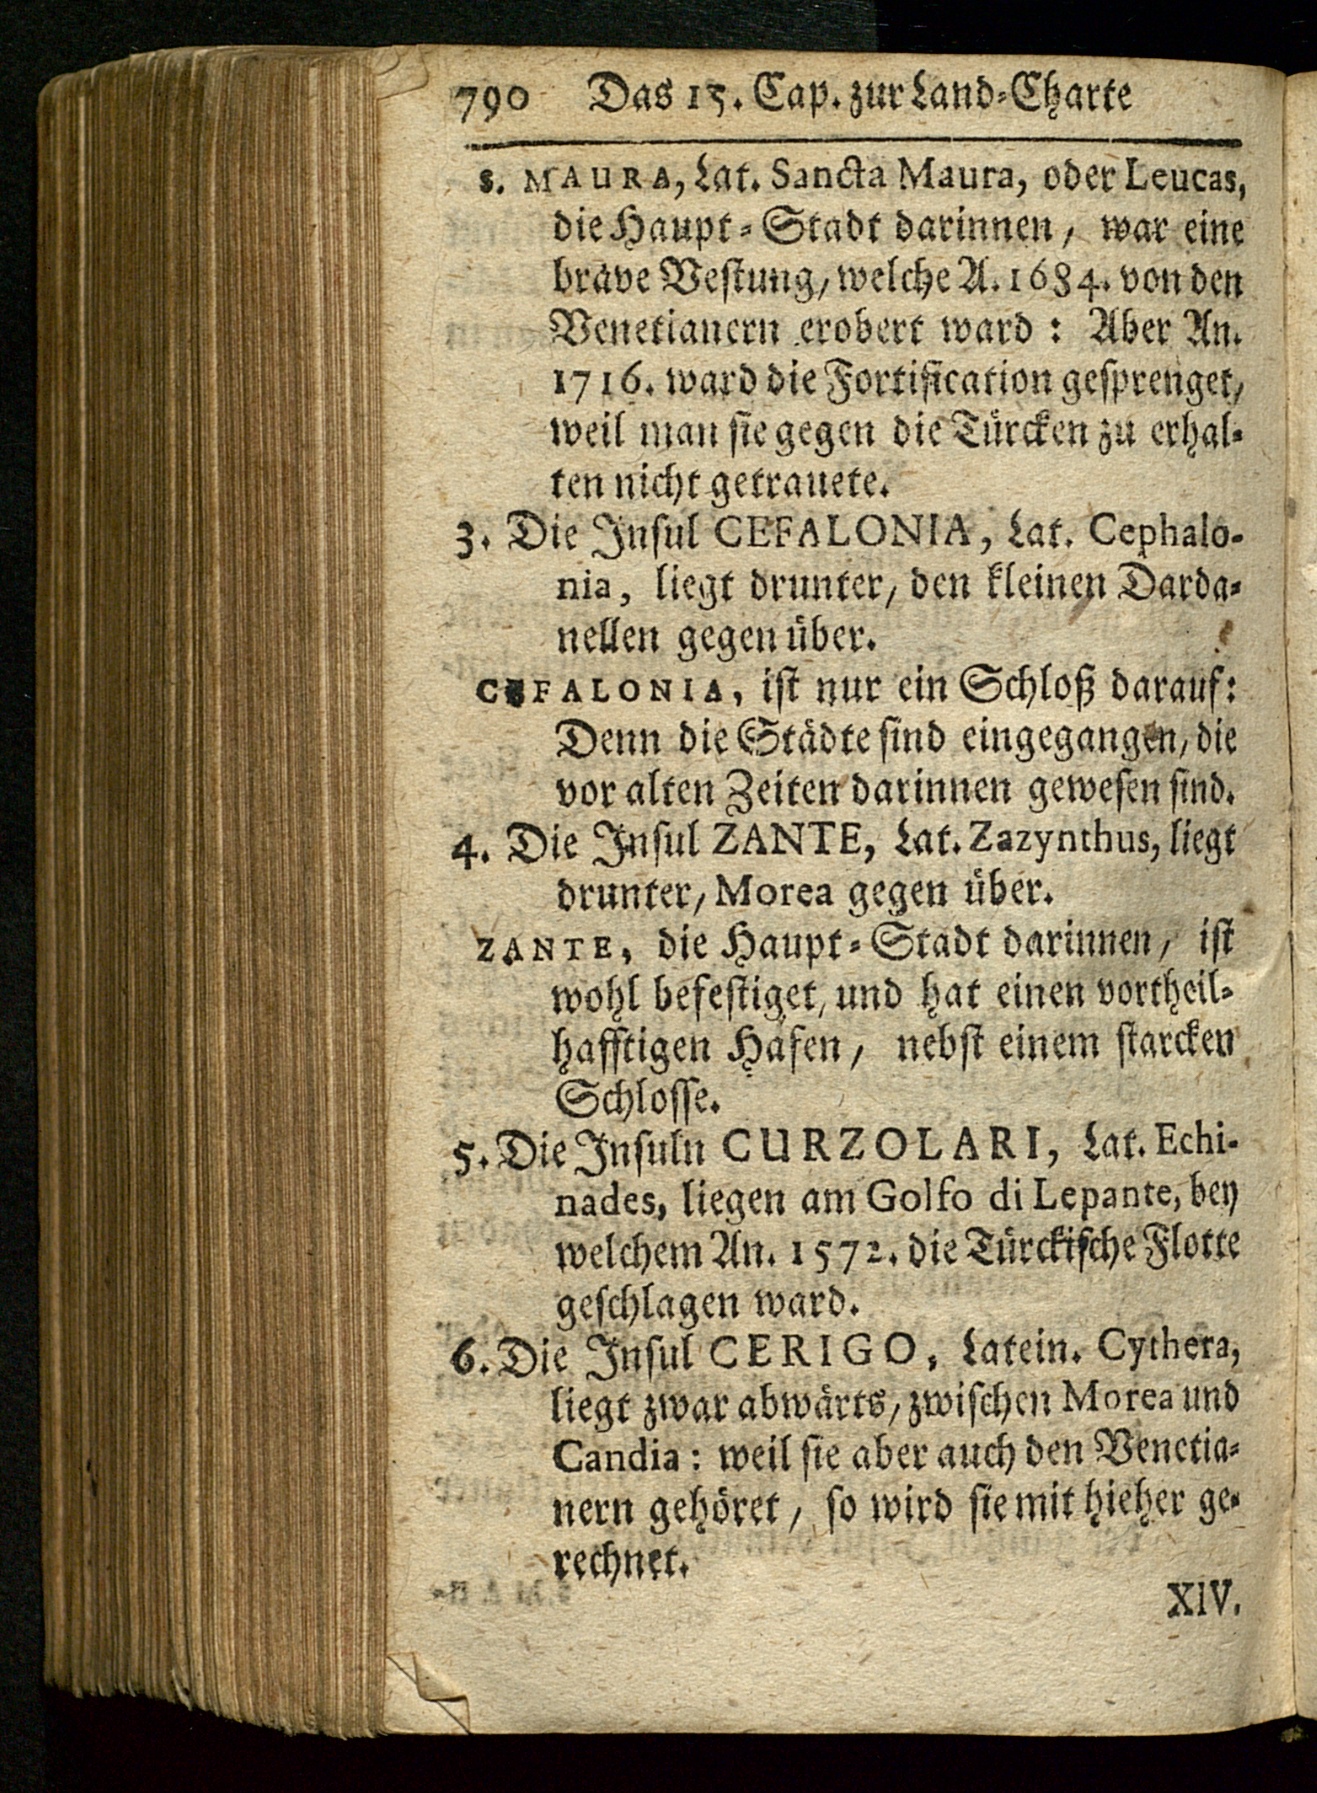 790 Das 15. Cap. zur Land-Charte
S. MAURA, Lat. Sancta Maura, oder Leucas,
die Haupt-Stadt darinnen, war eine
brave Vestung, welche A. 1684. von den
Venetianern erobert ward: Aber An.
1716. ward die Fortification gesprenget,
weil man sie gegen die Türcken zu erhal-
ten nicht getrauete.
3. Die Insul CEFALONIA, Lat. Cephalo-
nia, liegt drunter, den kleinen Darda-
nellen gegen über.
CEFALONIA, ist nur ein Schloß darauf:
Denn die Städte sind eingegangen, die
vor alten Zeiten darinnen gewesen sind.
4. Die Insul ZANTE, Lat. Zazynthus, liegt
drunter, Morea gegen über.
ZANTE, die Haupt-Stadt darinnen, ist
wohl befestiget, und hat einen vortheil-
hafftigen Hafen, nebst einem starcken
Schlosse.
5. Die Insuln CURZOLARI, Lat. Echi-
nades, liegen am Golfo di Lepante, bey
welchem An. 1572. die Türckische Flotte
geschlagen ward.
6. Die Insul CERIGO, Latein. Cythera,
liegt zwar abwärts, zwischen Morea und
Candia: weil sie aber auch den Venetia-
nern gehöret, so wird sie mit hieher ge-
rechnet.
XIV.